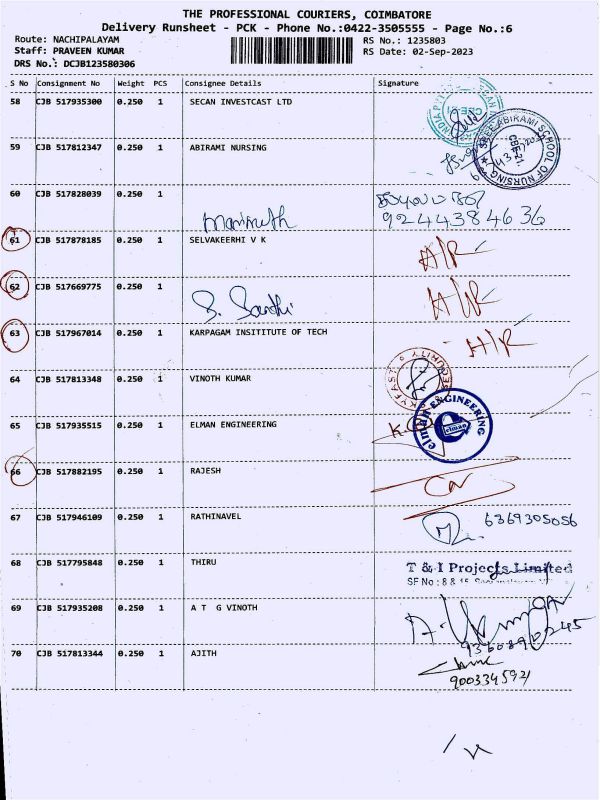 THE PROFESSIONAL COURIERS, COIMBATORE
Delivery Runsheet - PCK - Phone No.:0422-3505555 - Page No.:6
Route: NACHIPALAYAM RS No.: 1235803
Staff: PRAVEEN KUMAR RS Date: 02-Sep-2023
DRS No.: DCJB123580306
S No Consignment No Weight PCS Consignee Details Signature
58 CJB 517935300 0.250 1 SECAN INVESTCAST LTD
59 CJB 517812347 0.250 1 ABIRAMI NURSING
SREE ABIRAMI SCHOOL OF NURSING
60 CJB 517828039 0.250 1
9244384636
61 CJB 517878185 0.250 1 SELVAKEERHI V K
A/R
62 CJB 517669775 0.250 1
S. Santhi
A/R
63 CJB 517967014 0.250 1 KARPAGAM INSITITUTE OF TECH
A/R
64 CJB 517813348 0.250 1 VINOTH KUMAR
SKYFAST SECURITY
65 CJB 517935515 0.250 1 ELMAN ENGINEERING
elman ENGINEERING
elman
66 CJB 517882195 0.250 1 RAJESH
CN
67 CJB 517946109 0.250 1 RATHINAVEL
6369305056
68 CJB 517795848 0.250 1 THIRU
T & I Projects Limited
SF No : 8 & 15
69 CJB 517935208 0.250 1 A T G VINOTH
9360890245
70 CJB 517813344 0.250 1 AJITH
9003345921